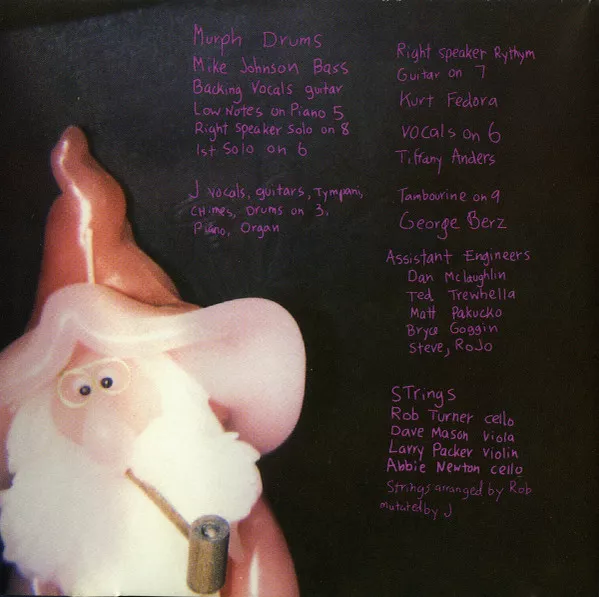 Murph Drums
Mike Johnson Bass
Backing Vocals guitar
Low Notes on Piano 5
Right Speaker Solo on 8
1st Solo on 6
J vocals, guitars, Tympani,
CHimes, Drums on 3,
Piano, Organ
Right speaker Rythym
Guitar on 7
Kurt Fedora
VOCALS on 6
Tiffany Anders
Tambourine on 9
George Berz
Assistant Engineers
Dan Mclaughlin
Ted Trewhella
Matt Pakucko
Bryce Goggin
Steve, RoJo
STrings
Rob Turner cello
Dave Mason viola
Larry Packer violin
Abbie Newton cello
Strings arranged by Rob
mutated by J